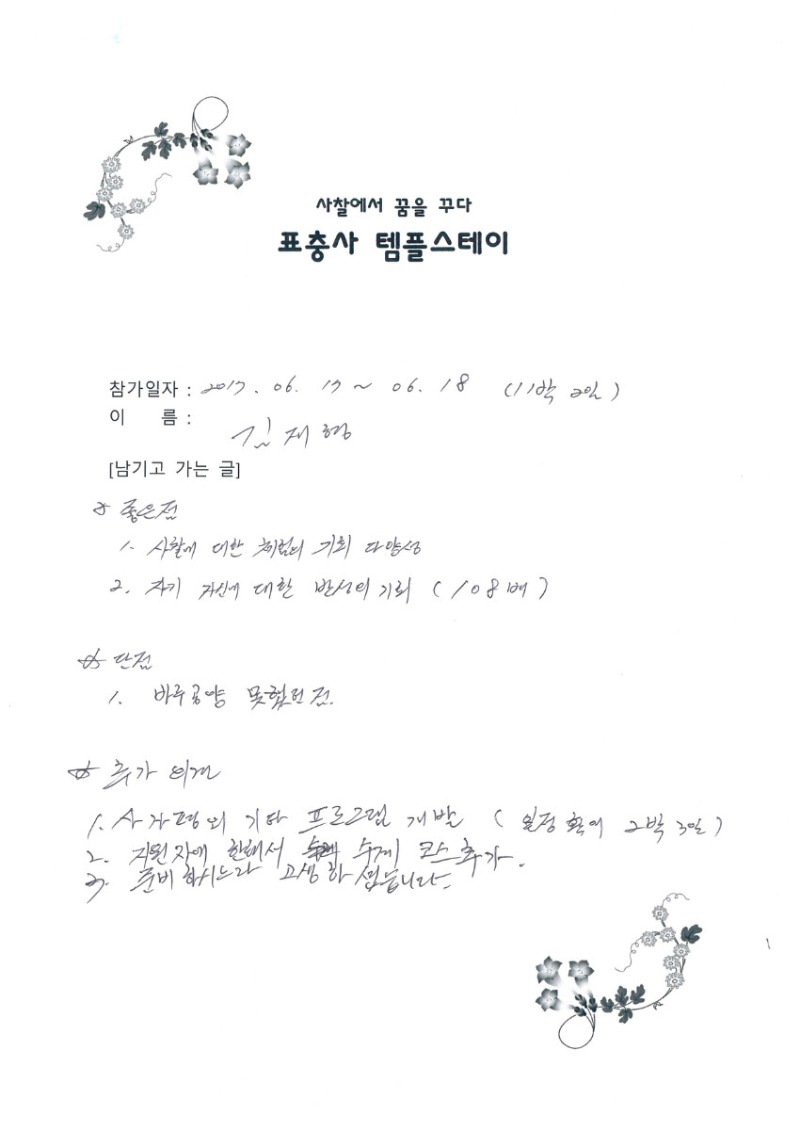 사찰에서 꿈을 꾸다
표충사 템플스테이
참가일자 : 2017. 06. 17 ~ 06. 18 (1박 2일)
이 름 : 김재형
[남기고 가는 글]
☆ 좋은점
1. 사찰에 대한 체험의 기회 다양성
2. 자기 자신에 대한 반성의 기회 (108배)
☆ 단점
1. 바루공양 못했던 점.
☆ 추가 의견
1. 외 기타 프로그램 개발 (일정 확대 2박 3일)
2. 지원자에 한해서 코스 추가.
3. 준비하시느라 고생하셨습니다.